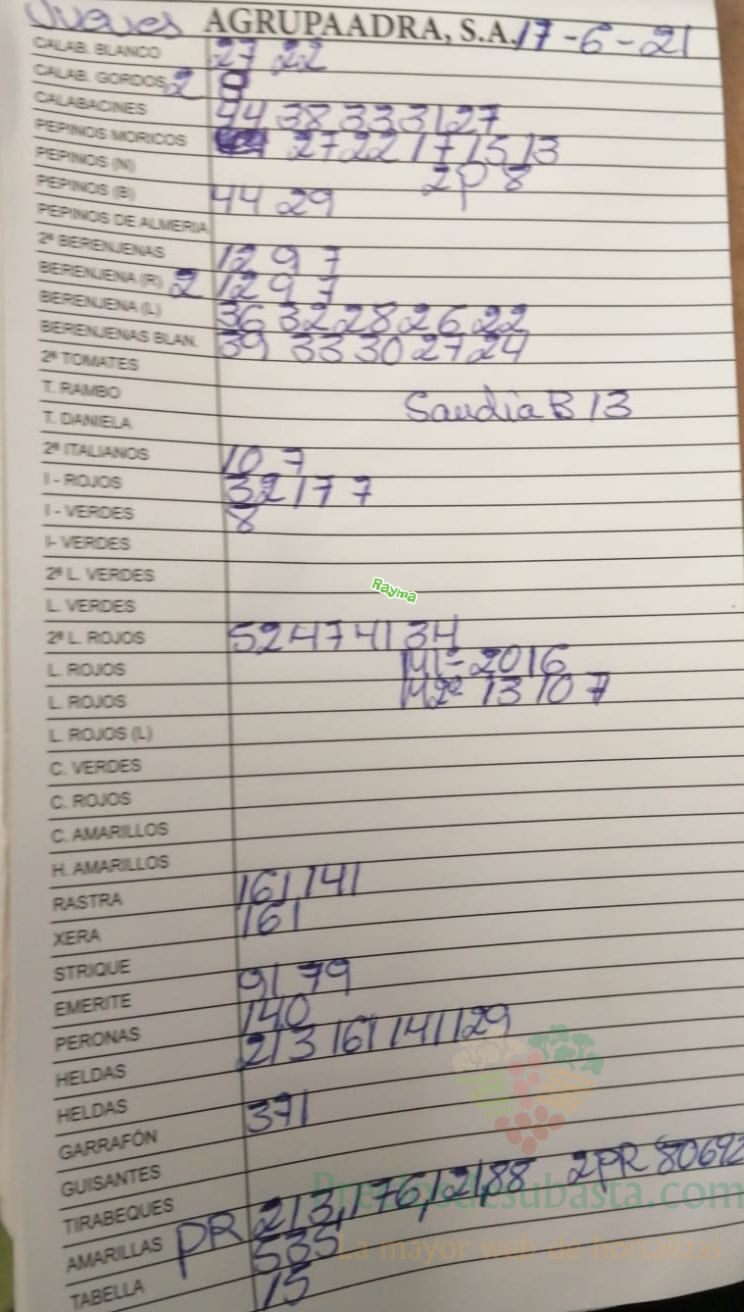 Jueves AGRUPAADRA, S.A. 17-6-21
CALAB. BLANCO 27 22
CALAB. GORDOS 2 9
CALABACINES 44 38 33 31 27
PEPINOS MORICOS 27 22 17 15 13
PEPINOS (N) 2P 8
PEPINOS (B) 44 29
PEPINOS DE ALMERIA
2ª BERENJENAS 12 9 7
BERENJENA (R) 2 12 9 7
BERENJENA (L) 36 32 28 26 22
BERENJENAS BLAN. 39 33 30 27 24
2ª TOMATES
T. RAMBO Sandia B 13
T. DANIELA
2ª ITALIANOS 10 7
I - ROJOS 32 17 7
I - VERDES 8
I- VERDES
2ª L. VERDES
Rayma
L. VERDES
2ª L. ROJOS 52 47 41 34
L. ROJOS M1ª- 20 16
L. ROJOS M2ª 13 10 7
L. ROJOS (L)
C. VERDES
C. ROJOS
C. AMARILLOS
H. AMARILLOS
RASTRA 161 141
XERA 161
STRIQUE
EMERITE 91 79
PERONAS 140
HELDAS 213 161 141 129
HELDAS
GARRAFÓN 371
GUISANTES
TIRABEQUES
AMARILLAS PR 213, 176, 121, 88 2PR 80692
TABELLA 535
15
Preciosdesubasta.com
La mayor web de hortalizas